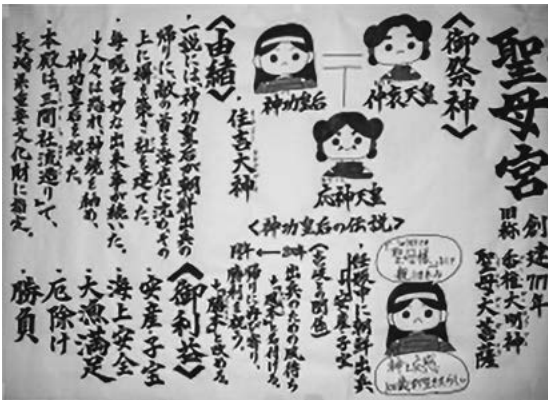 聖母宮
創建717年
旧称 香椎大明神
聖母大菩薩
〈御祭神〉
仲哀天皇
神功皇后
応神天皇
・住吉大神
〈神功皇后の伝説〉
・妊娠中に朝鮮出兵
→安産、子宝
〈壱岐との関色〉
出兵のための風待ち
→風本と名付ける。
帰りに再び寄り、
勝利を祝う。
→勝本と改める。
〈由緒〉
・一説には、神功皇后が朝鮮出兵の
帰りに、敵の首を海底に沈め、その
上に塀を築き社を建てた。
・毎晩奇妙な出来事が続いた。
→人々は恐れ、神鏡を納め、
神功皇后を祀った。
・本殿は「三間社流造り」で、
長崎県重要文化財に指定。
〈御利益〉
安産 子宝
海上安全
大漁満足
厄除け
勝負